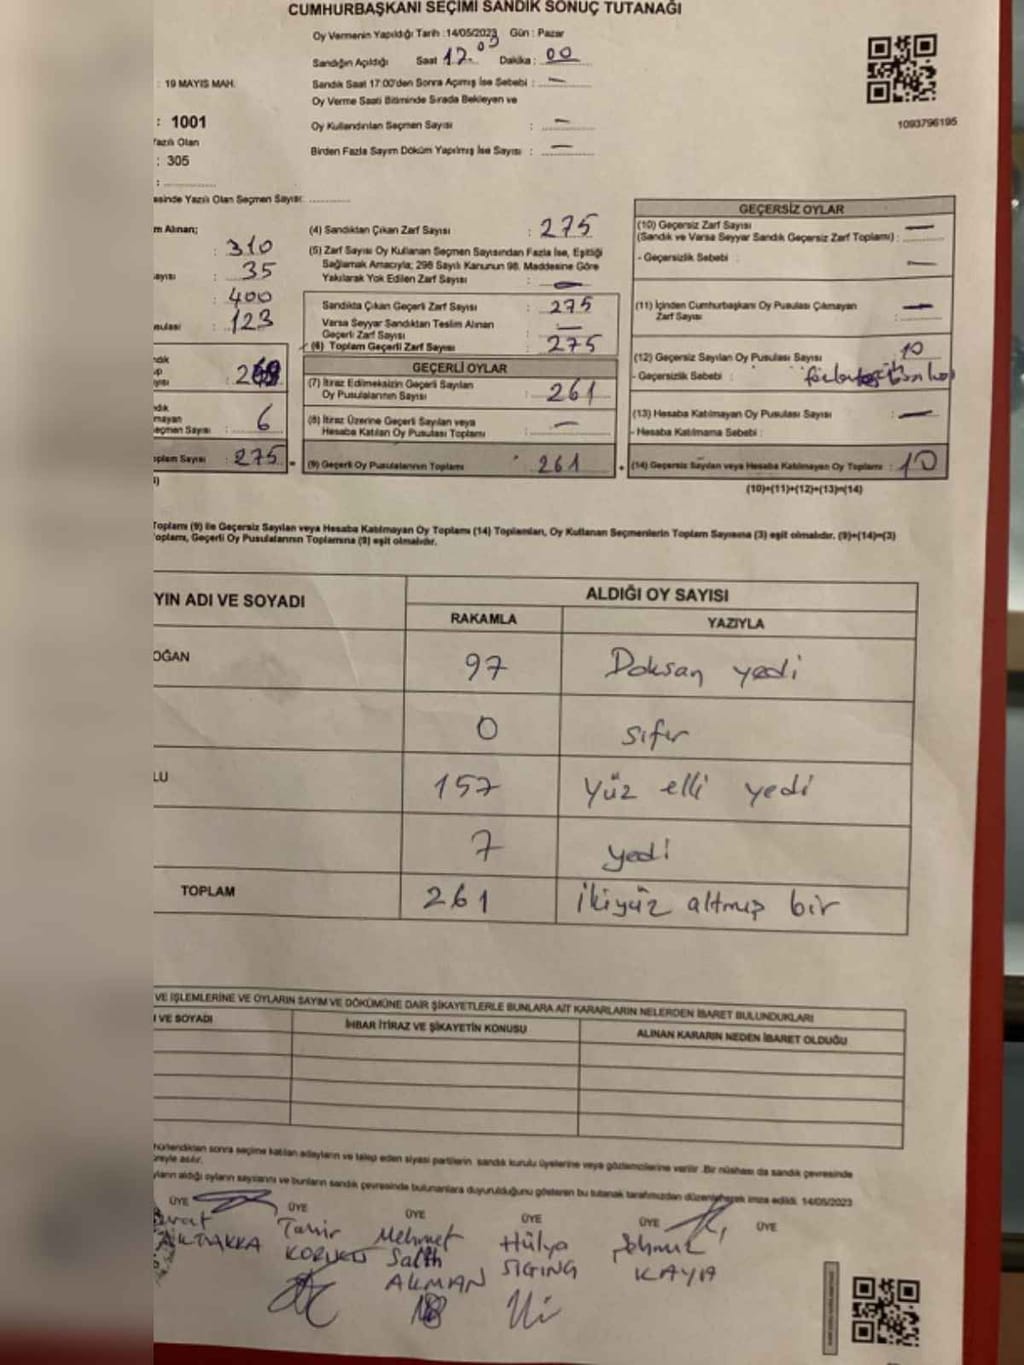 CUMHURBAŞKANI SEÇİMİ SANDIK SONUÇ TUTANAĞI
Oy Vermenin Yapıldığı Tarih :14/05/2023 Gün : Pazar
Sandığın Açıldığı Saat 17.00 Dakika : 00
: 19 MAYIS MAH.
Sandık Saat 17:00'den Sonra Açımış İse Sebebi : —
Oy Verme Saati Bitiminde Sırada Bekleyen ve
: 1001
Oy Kullandırılan Seçmen Sayısı : —
1093796195
Yazılı Olan
: 305
Birden Fazla Sayım Döküm Yapılmış İse Sayısı : —
esinde Yazılı Olan Seçmen Sayısı:
m Alınan;
: 310
ayısı : 35
: 400
usulası : 123
ndık
ayısı
ndık
mayan
eçmen Sayısı : 6
oplam Sayısı : 275
(4) Sandıktan Çıkan Zarf Sayısı : 275
(5) Zarf Sayısı Oy Kullanan Seçmen Sayısından Fazla İse, Eşitliği
Sağlamak Amacıyla; 298 Sayılı Kanunun 98. Maddesine Göre
Yakılarak Yok Edilen Zarf Sayısı : —
Sandıkta Çıkan Geçerli Zarf Sayısı : 275
Varsa Seyyar Sandıktan Teslim Alınan
Geçerli Zarf Sayısı : —
(6) Toplam Geçerli Zarf Sayısı : 275
GEÇERLİ OYLAR
(7) İtiraz Edilmeksizin Geçerli Sayılan
Oy Pusulalarının Sayısı : 261
(8) İtiraz Üzerine Geçerli Sayılan veya
Hesaba Katılan Oy Pusulası Toplamı : —
(9) Geçerli Oy Pusulalarının Toplamı : 261
GEÇERSİZ OYLAR
(10) Geçersiz Zarf Sayısı —
(Sandık ve Varsa Seyyar Sandık Geçersiz Zarf Toplamı) :
- Geçersizlik Sebebi : —
(11) İçinden Cumhurbaşkanı Oy Pusulası Çıkmayan —
Zarf Sayısı :
(12) Geçersiz Sayılan Oy Pusulası Sayısı : 10
- Geçersizlik Sebebi :
(13) Hesaba Katılmayan Oy Pusulası Sayısı : —
- Hesaba Katılmama Sebebi :
(14) Geçersiz Sayılan veya Hesaba Katılmayan Oy Toplamı : 10
(10)+(11)+(12)+(13)=(14)
Toplamı (9) ile Geçersiz Sayılan veya Hesaba Katılmayan Oy Toplamı (14) Toplamları, Oy Kullanan Seçmenlerin Toplam Sayısına (3) eşit olmalıdır. (9)+(14)=(3)
oplamı, Geçerli Oy Pusulalarının Toplamına (9) eşit olmalıdır.
YIN ADI VE SOYADI
ALDIĞI OY SAYISI
RAKAMLA YAZIYLA
OĞAN 97 Doksan yedi
0 sıfır
LU 157 Yüz elli yedi
7 yedi
TOPLAM 261 İkiyüz altmış bir
VE İŞLEMLERİNE VE OYLARIN SAYIM VE DÖKÜMÜNE DAİR ŞİKAYETLERLE BUNLARA AİT KARARLARIN NELERDEN İBARET BULUNDUKLARI
I VE SOYADI İHBAR İTİRAZ VE ŞİKAYETİN KONUSU ALINAN KARARIN NEDEN İBARET OLDUĞU
hürlendikten sonra seçime katılan adayların ve talep eden siyasi partilerin sandık kurulu üyelerine veya gözlemcilerine verilir .Bir nüshası da sandık çevresinde
üreyle asılır.
yların aldığı oyların sayılarını ve bunların sandık çevresinde bulunanlara duyurulduğunu gösteren bu tutanak tarafımızdan düzenlenerek imza edildi. 14/05/2023
ÜYE ÜYE ÜYE ÜYE ÜYE ÜYE
Tahir Mehmet Hülya
Salih
AKMAN KAYA